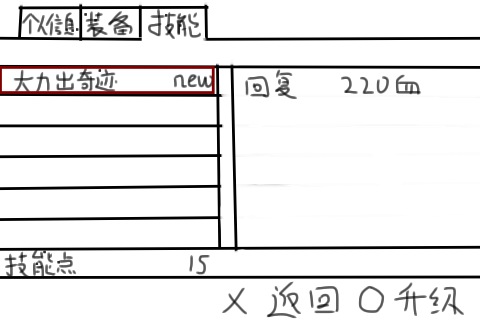 个人信息 装备 技能
大力出奇迹 new
回复 220血
技能点 15
X 返回 O 升级